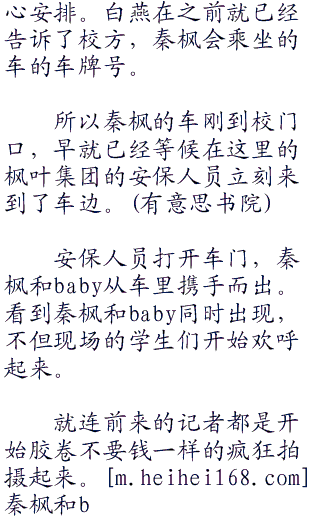 心安排。白燕在之前就已经
告诉了校方，秦枫会乘坐的
车的车牌号。
所以秦枫的车刚到校门
口，早就已经等候在这里的
枫叶集团的安保人员立刻来
到了车边。(有意思书院)
安保人员打开车门，秦
枫和baby从车里携手而出。
看到秦枫和baby同时出现，
不但现场的学生们开始欢呼
起来。
就连前来的记者都是开
始胶卷不要钱一样的疯狂拍
摄起来。[m.heihei168.com]
秦枫和b